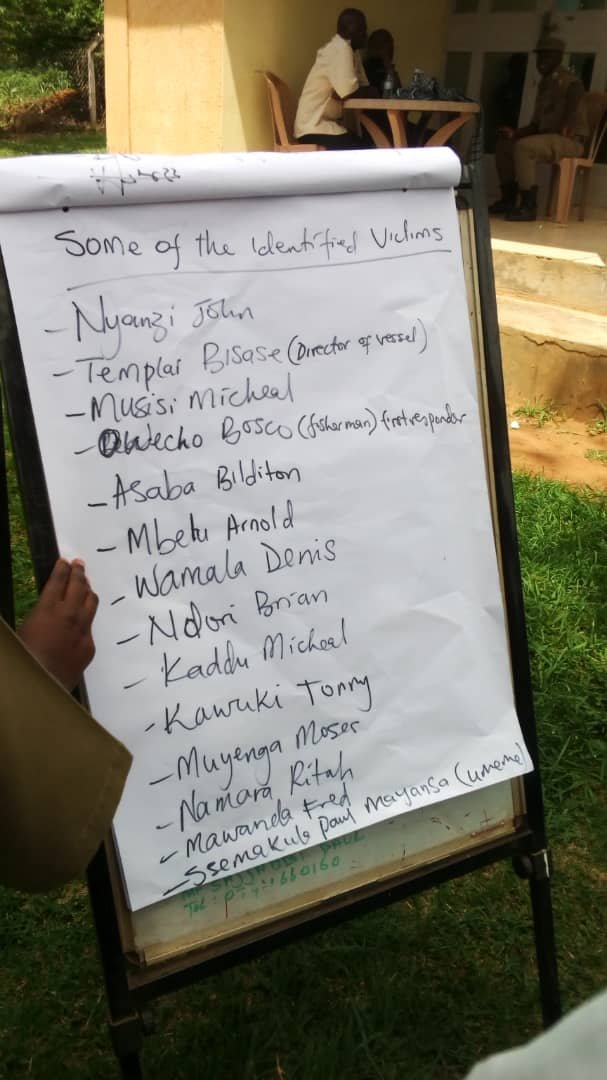 Some of the Identified Victims
- Nyanzi John
- Templar Bisase (Director of vessel)
- Musisi Micheal
- Owecho Bosco (fisherman) first responder
- Asaba Bilditon
- Mbetu Arnold
- Wamala Denis
- Ndori Brian
- Kaddu Micheal
- Kawuki Tonny
- Muyenga Moser
- Namara Ritah
- Mawanda Fred
- Ssemakula Paul Mayansa (umeme)
PAUL
Tel:
660160